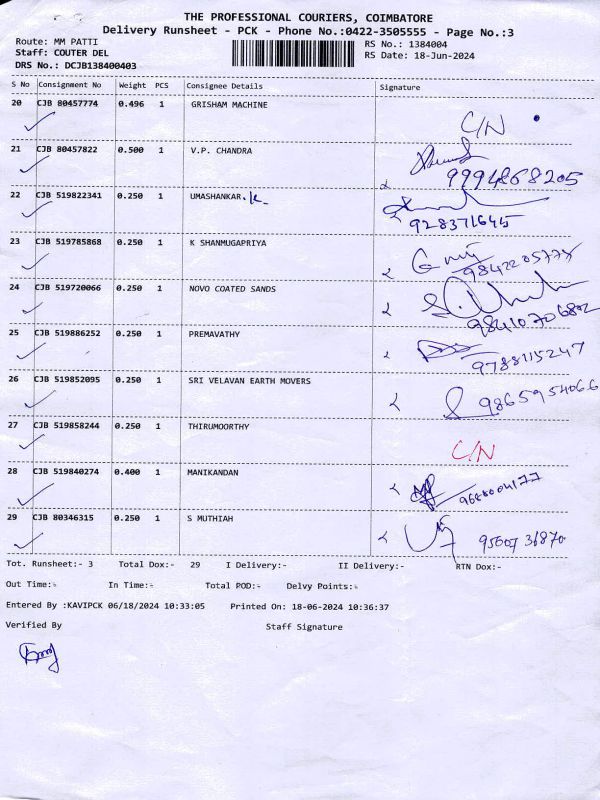 THE PROFESSIONAL COURIERS, COIMBATORE
Delivery Runsheet - PCK - Phone No.:0422-3505555 - Page No.:3
Route: MM PATTI
RS No.: 1384004
Staff: COUTER DEL
RS Date: 18-Jun-2024
DRS No.: DCJB138400403
S No Consignment No Weight PCS Consignee Details Signature
20 CJB 80457774 0.496 1 GRISHAM MACHINE
C/N
21 CJB 80457822 0.500 1 V.P. CHANDRA
9994868205
22 CJB 519822341 0.250 1 UMASHANKAR.K
928371645
23 CJB 519785868 0.250 1 K SHANMUGAPRIYA
24 CJB 519720066 0.250 1 NOVO COATED SANDS
25 CJB 519886252 0.250 1 PREMAVATHY
9788115247
26 CJB 519852095 0.250 1 SRI VELAVAN EARTH MOVERS
9865954066
27 CJB 519858244 0.250 1 THIRUMOORTHY
C/N
28 CJB 519840274 0.400 1 MANIKANDAN
29 CJB 80346315 0.250 1 S MUTHIAH
Tot. Runsheet:- 3 Total Dox:- 29 I Delivery:- II Delivery:- RTN Dox:-
Out Time:- In Time:- Total POD:- Delvy Points:-
Entered By :KAVIPCK 06/18/2024 10:33:05 Printed On: 18-06-2024 10:36:37
Verified By Staff Signature